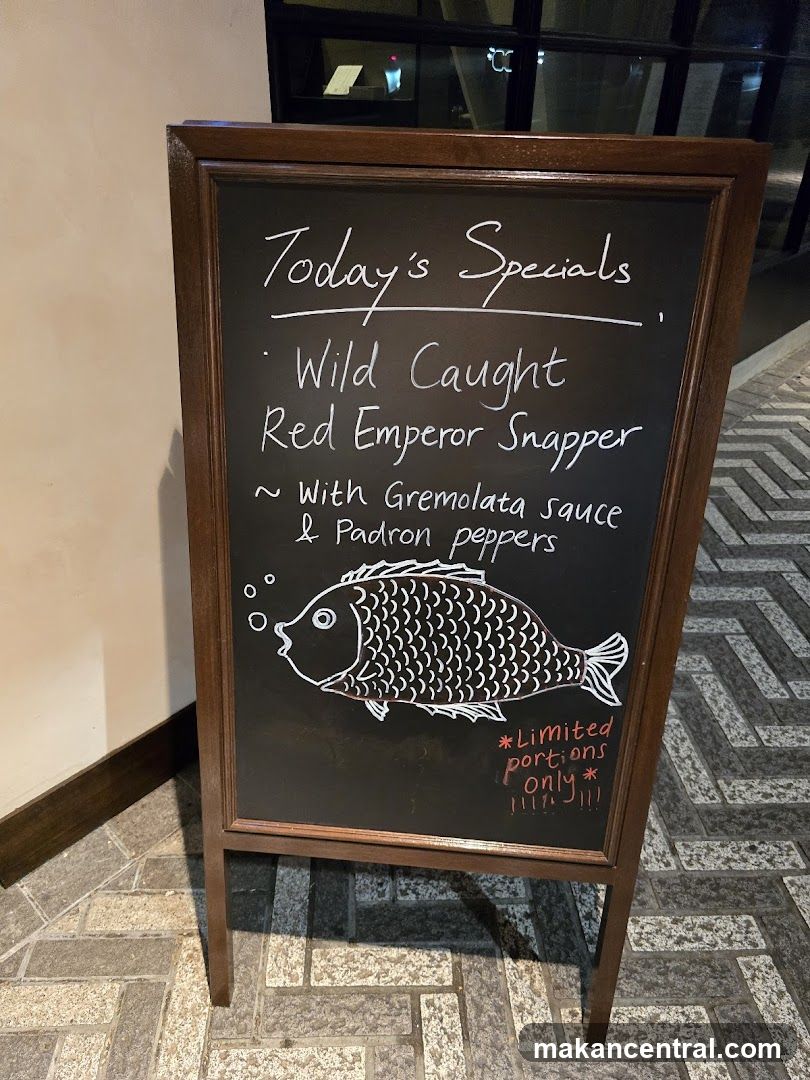 Today's Specials
Wild Caught
Red Emperor Snapper
~ With Gremolata sauce
& Padron peppers
*Limited
portions
only*
!!!!!!!!!
makancentral.com